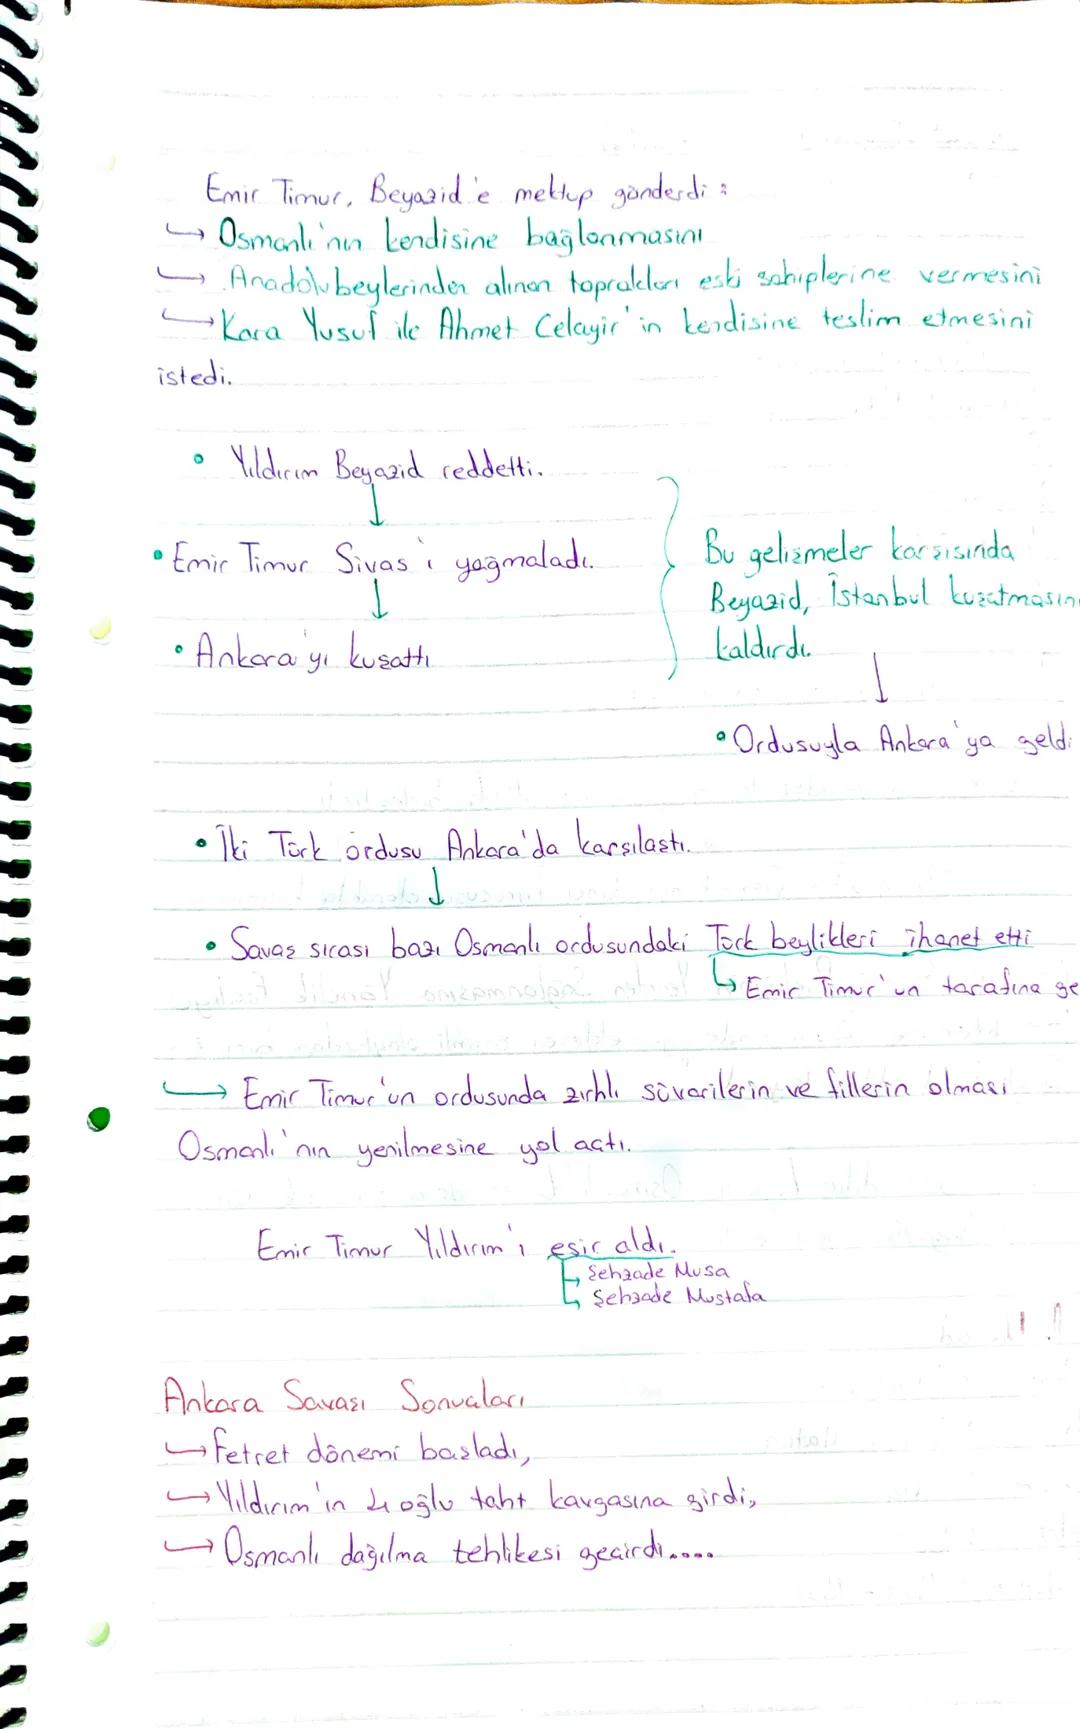 Emir Timur, Beyazid'e mektup gönderdi:
↳ Osmanlı'nın kendisine bağlanmasını
↳ Anadolu beylerinden alınan toprakları eski sahiplerine vermesini
↳ Kara Yusuf ile Ahmet Celayir'in kendisine teslim etmesini
istedi.
• Yıldırım Beyazid reddetti.
↓
• Emir Timur Sivas'ı yağmaladı.
↓
• Ankara'yı kuşattı
Bu gelişmeler karşısında
Beyazid, İstanbul kuşatmasını
kaldırdı.
↓
• Ordusuyla Ankara'ya geldi
• İki Türk ordusu Ankara'da karşılaştı.
↓
• Savaş sırası bazı Osmanlı ordusundaki Türk beylikleri ihanet etti
↳ Emir Timur'un tarafına ge
→ Emir Timur'un ordusunda zırhlı süvarilerin ve fillerin olması
Osmanlı'nın yenilmesine yol açtı.
Emir Timur Yıldırım'ı esir aldı.
↳ Şehzade Musa
↳ Şehzade Mustafa
Ankara Savaşı Sonuçları
↳ Fetret dönemi başladı,
↳ Yıldırım'ın 4 oğlu taht kavgasına girdi,
↳ Osmanlı dağılma tehlikesi geçirdi....